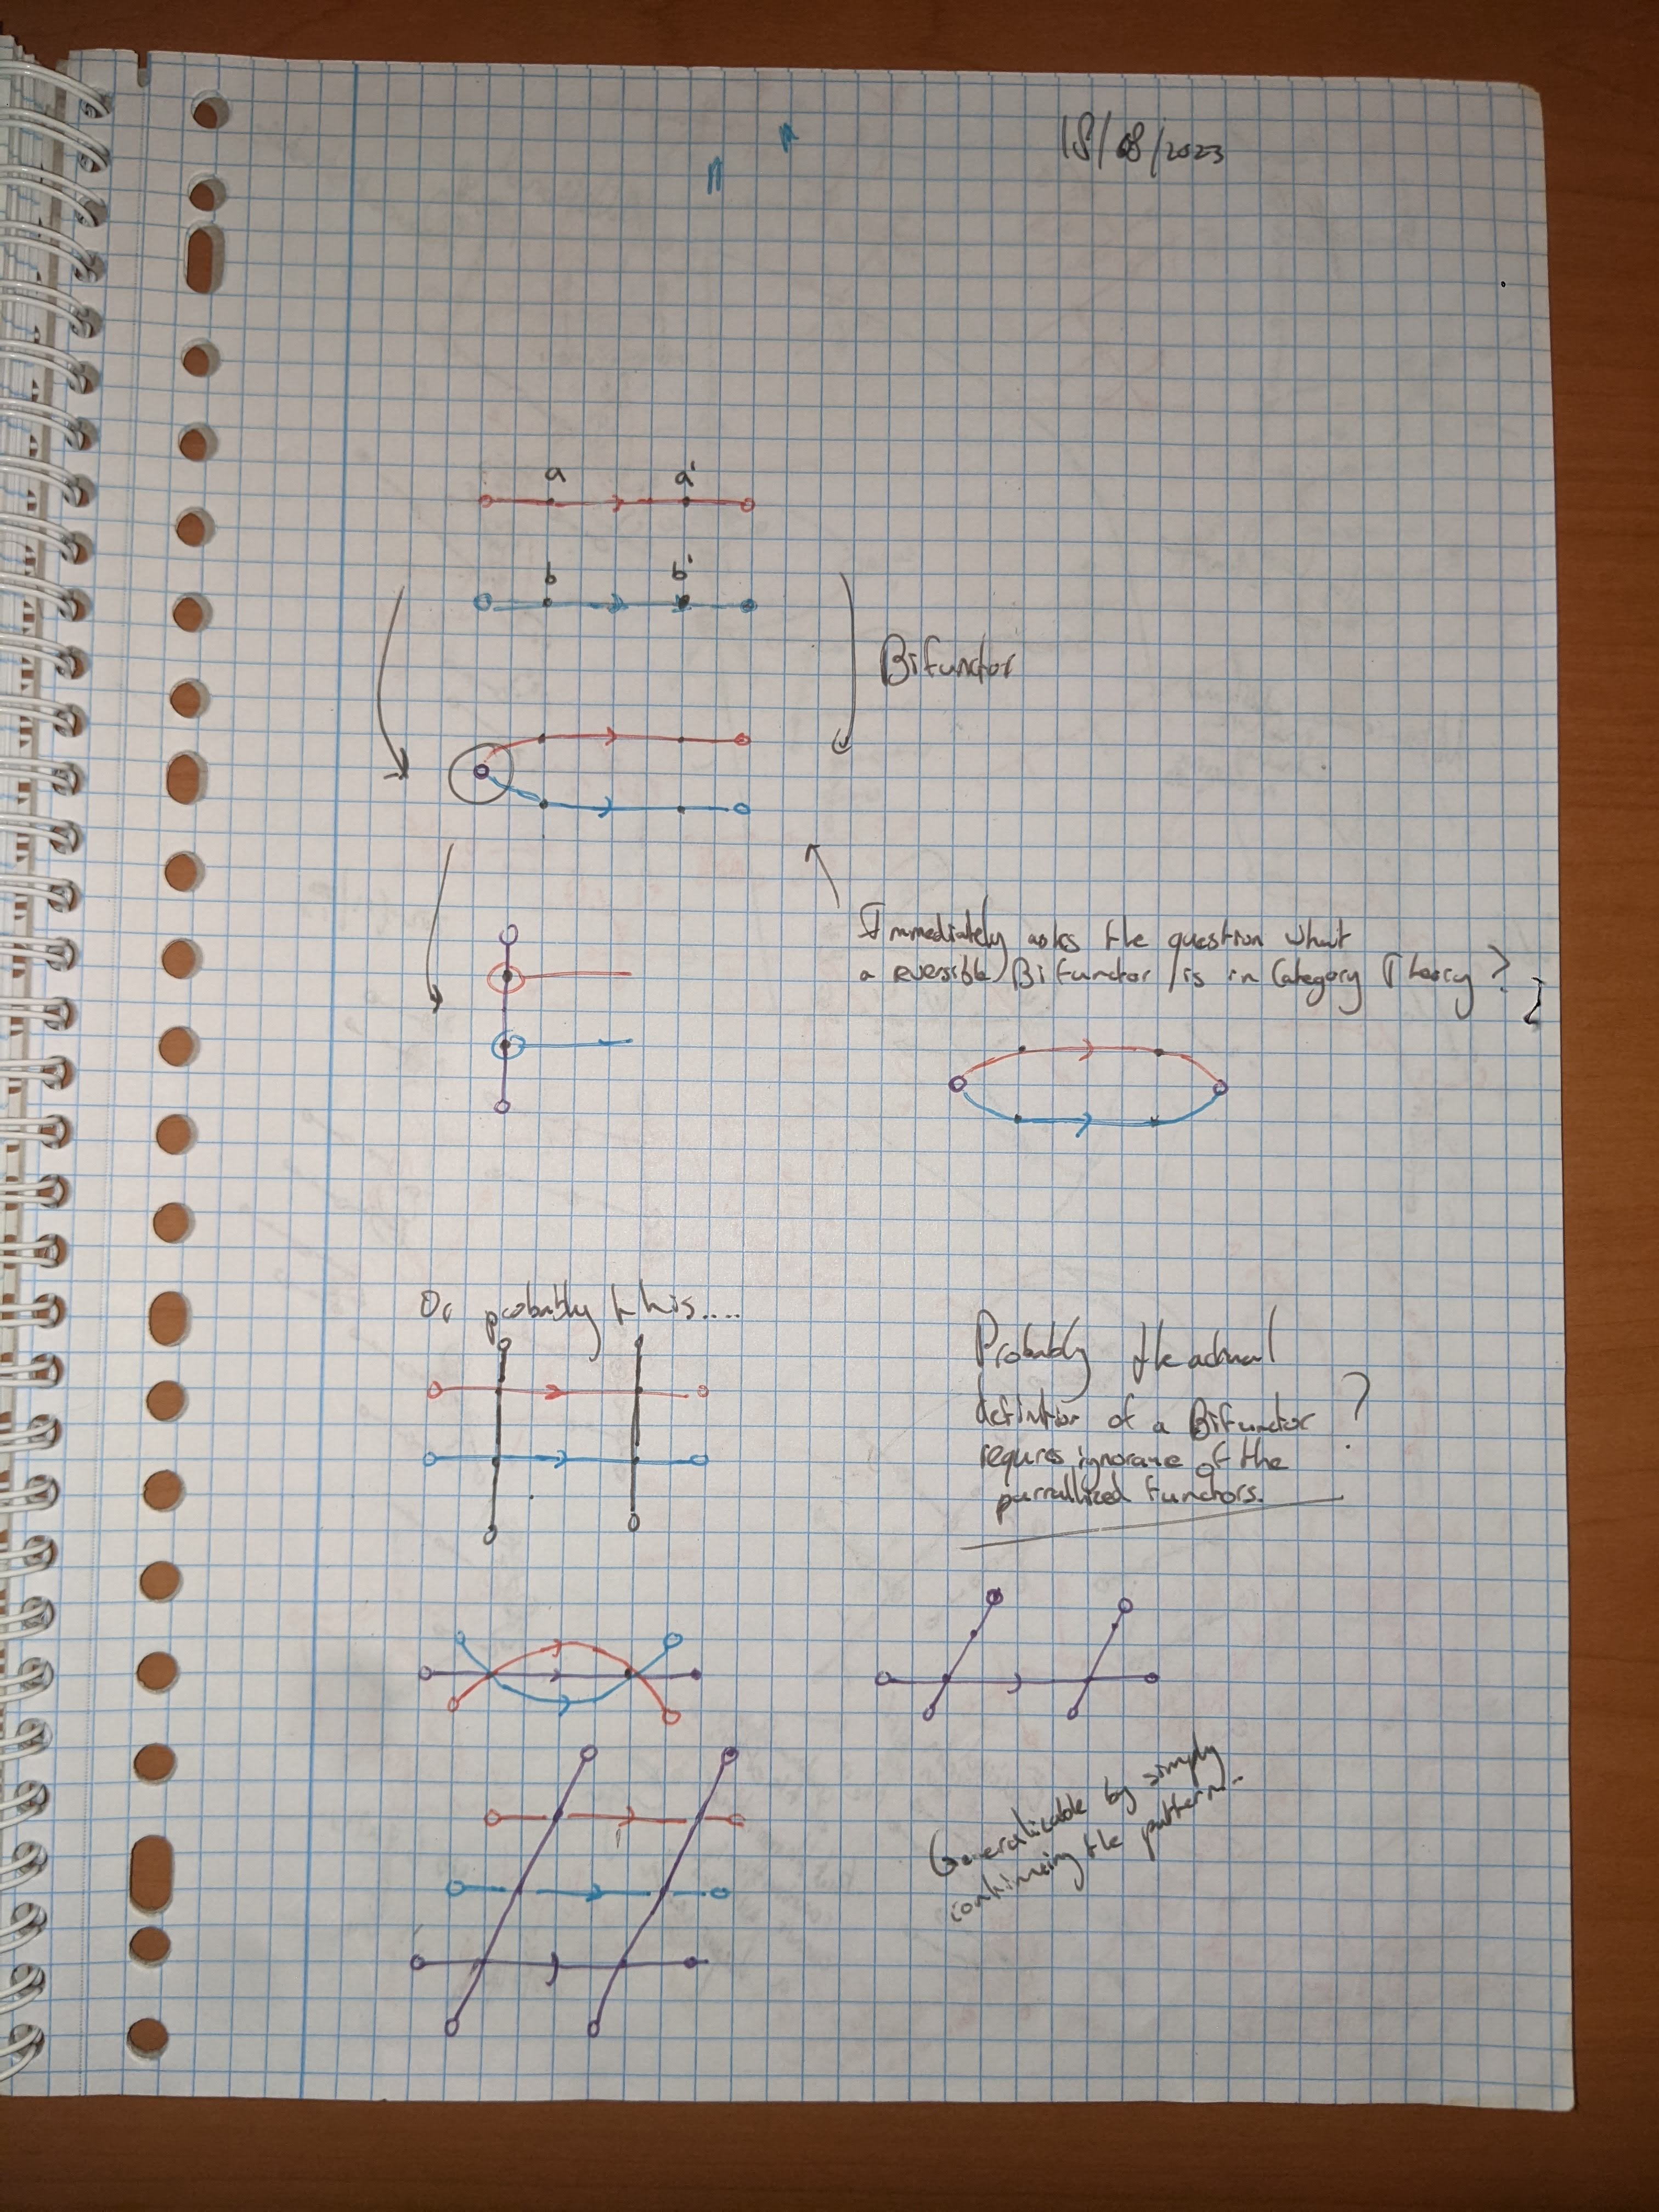 18/08/2023
a a'
b b'
Bifunctor
Immediately asks the question what
a reversible Bifunctor is in Category Theory?
Or probably this....
Probably the actual
definition of a Bifunctor ?
requires ignorance of the
parrallized functors.
Generalizable by simply
continuing the pattern..